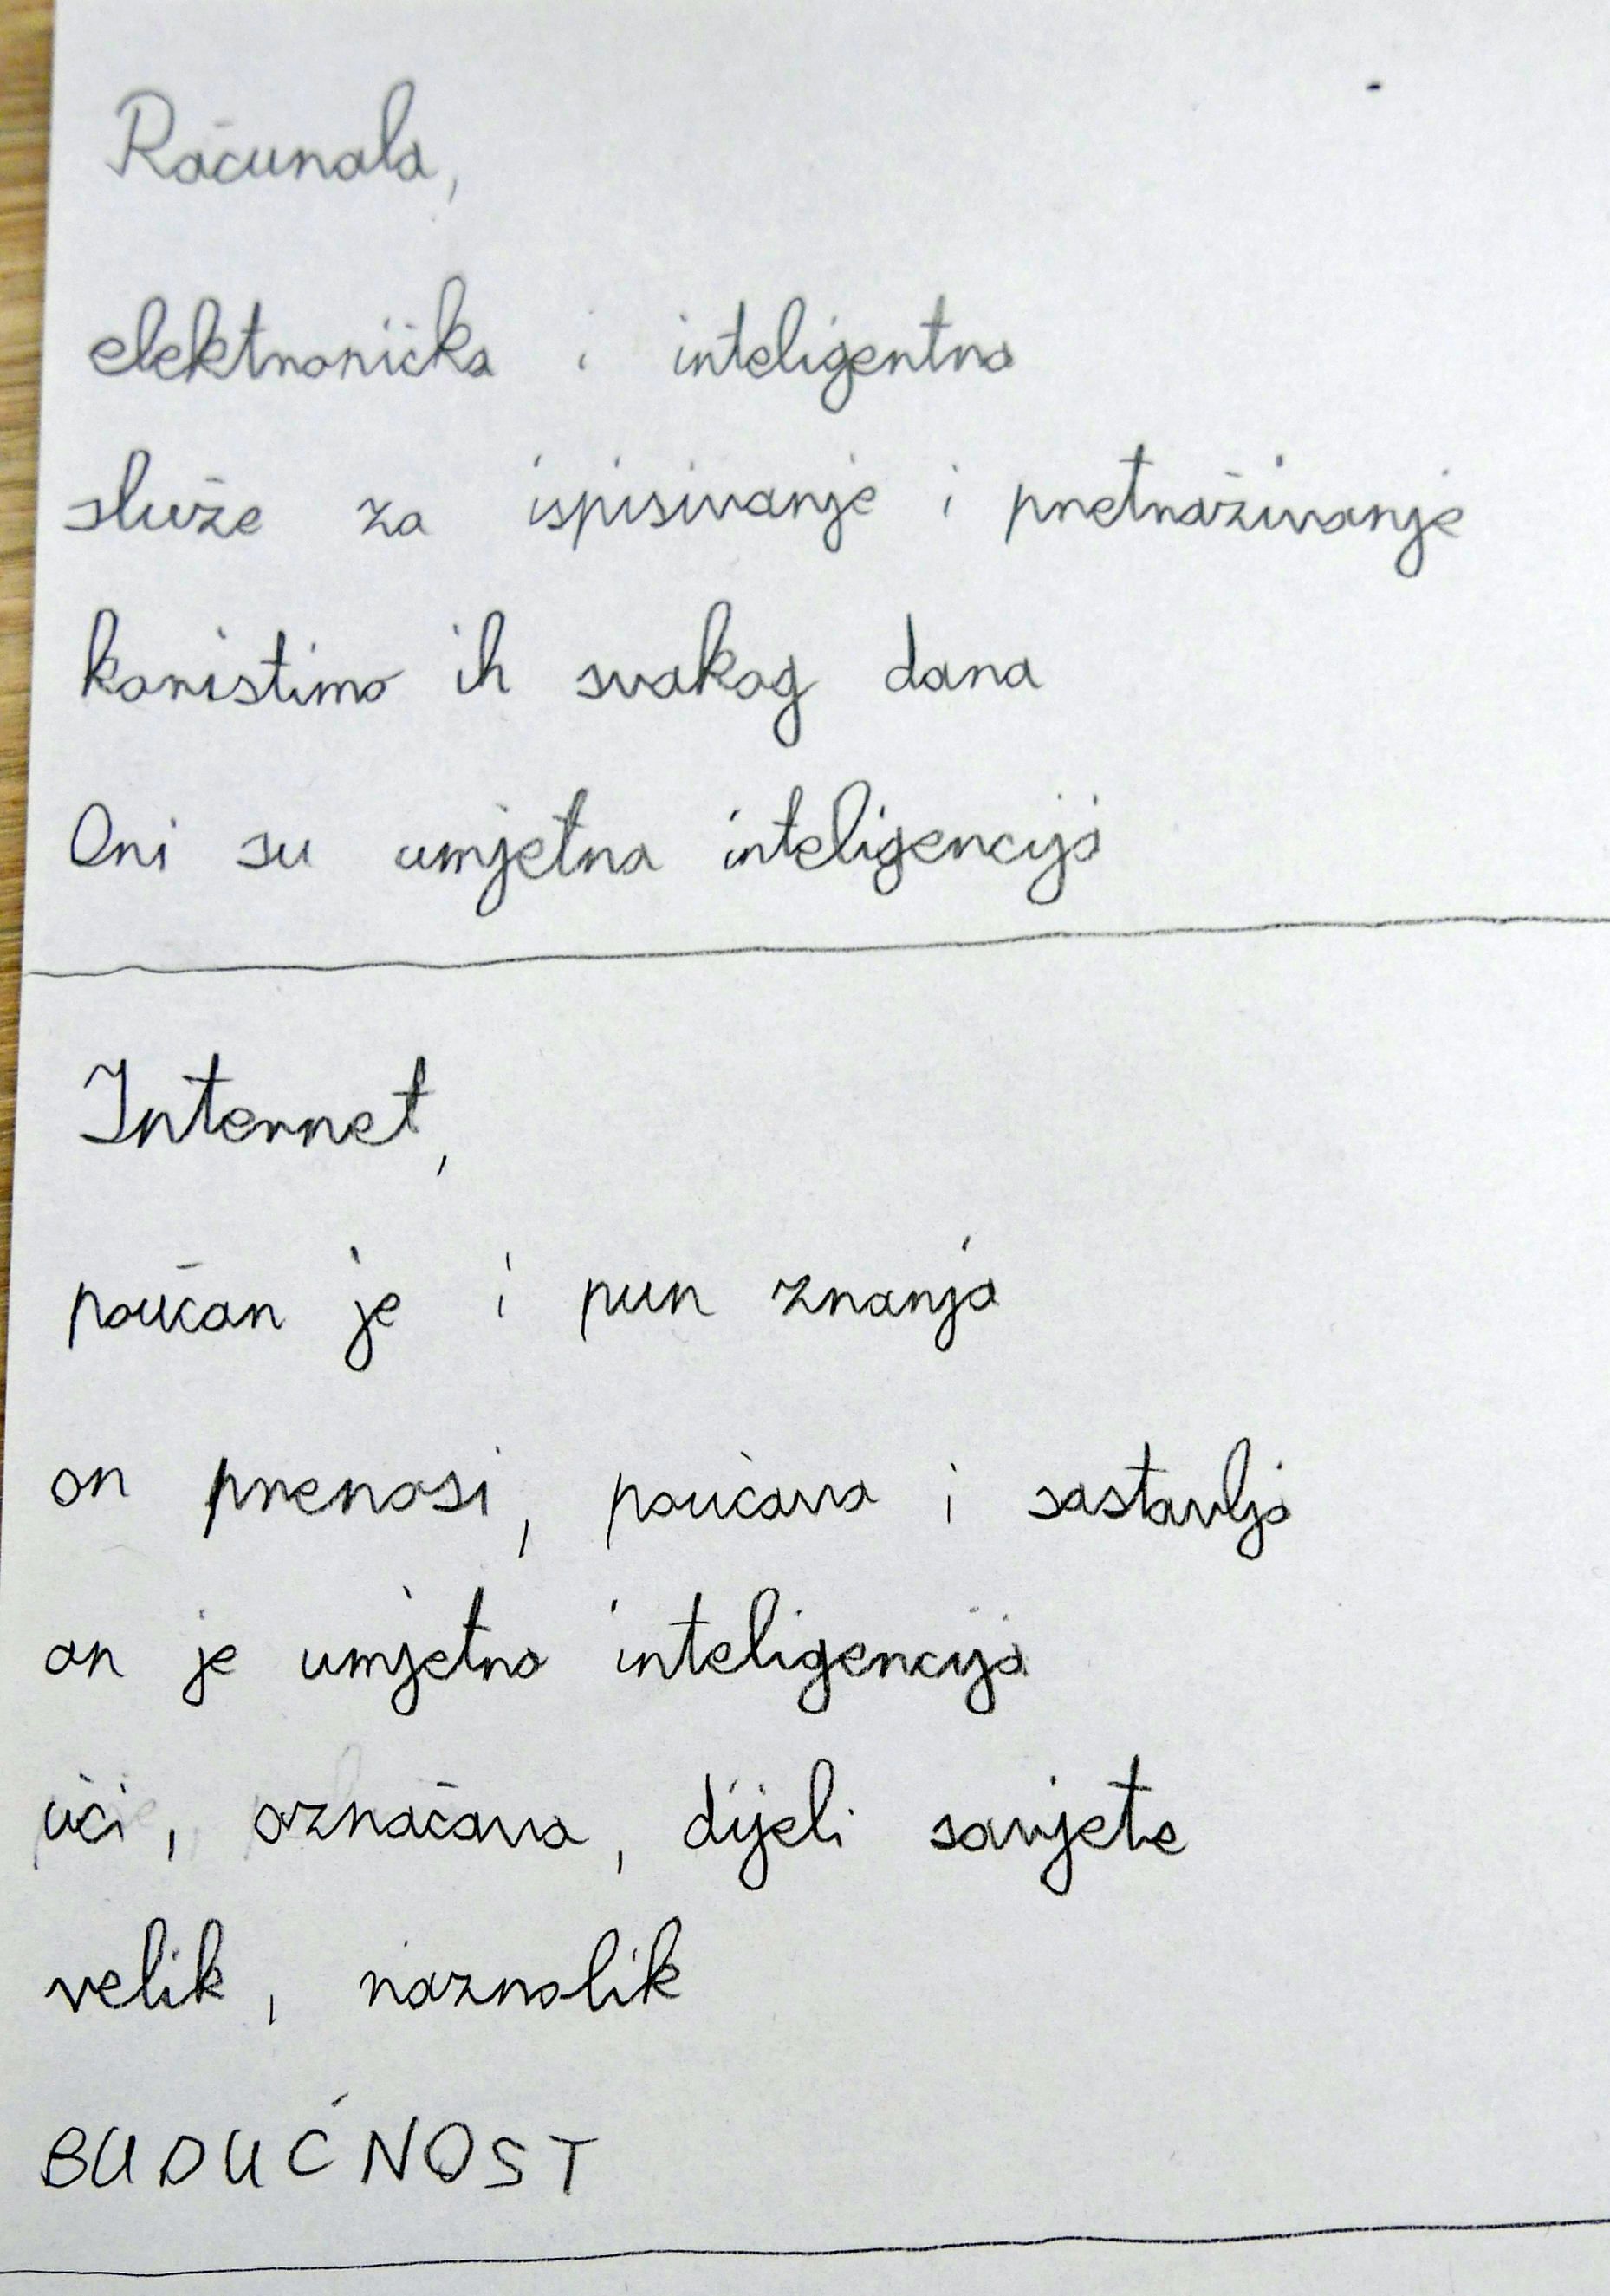 Računala,
elektronička i inteligentna
služe za ispisivanje i pretraživanje
koristimo ih svakog dana
Oni su umjetna inteligencija
Internet,
poučan je i pun znanja
on prenosi, poučava i sastavlja
on je umjetna inteligencija
uči, označava, dijeli savjete
velik, raznolik
BUDUĆNOST